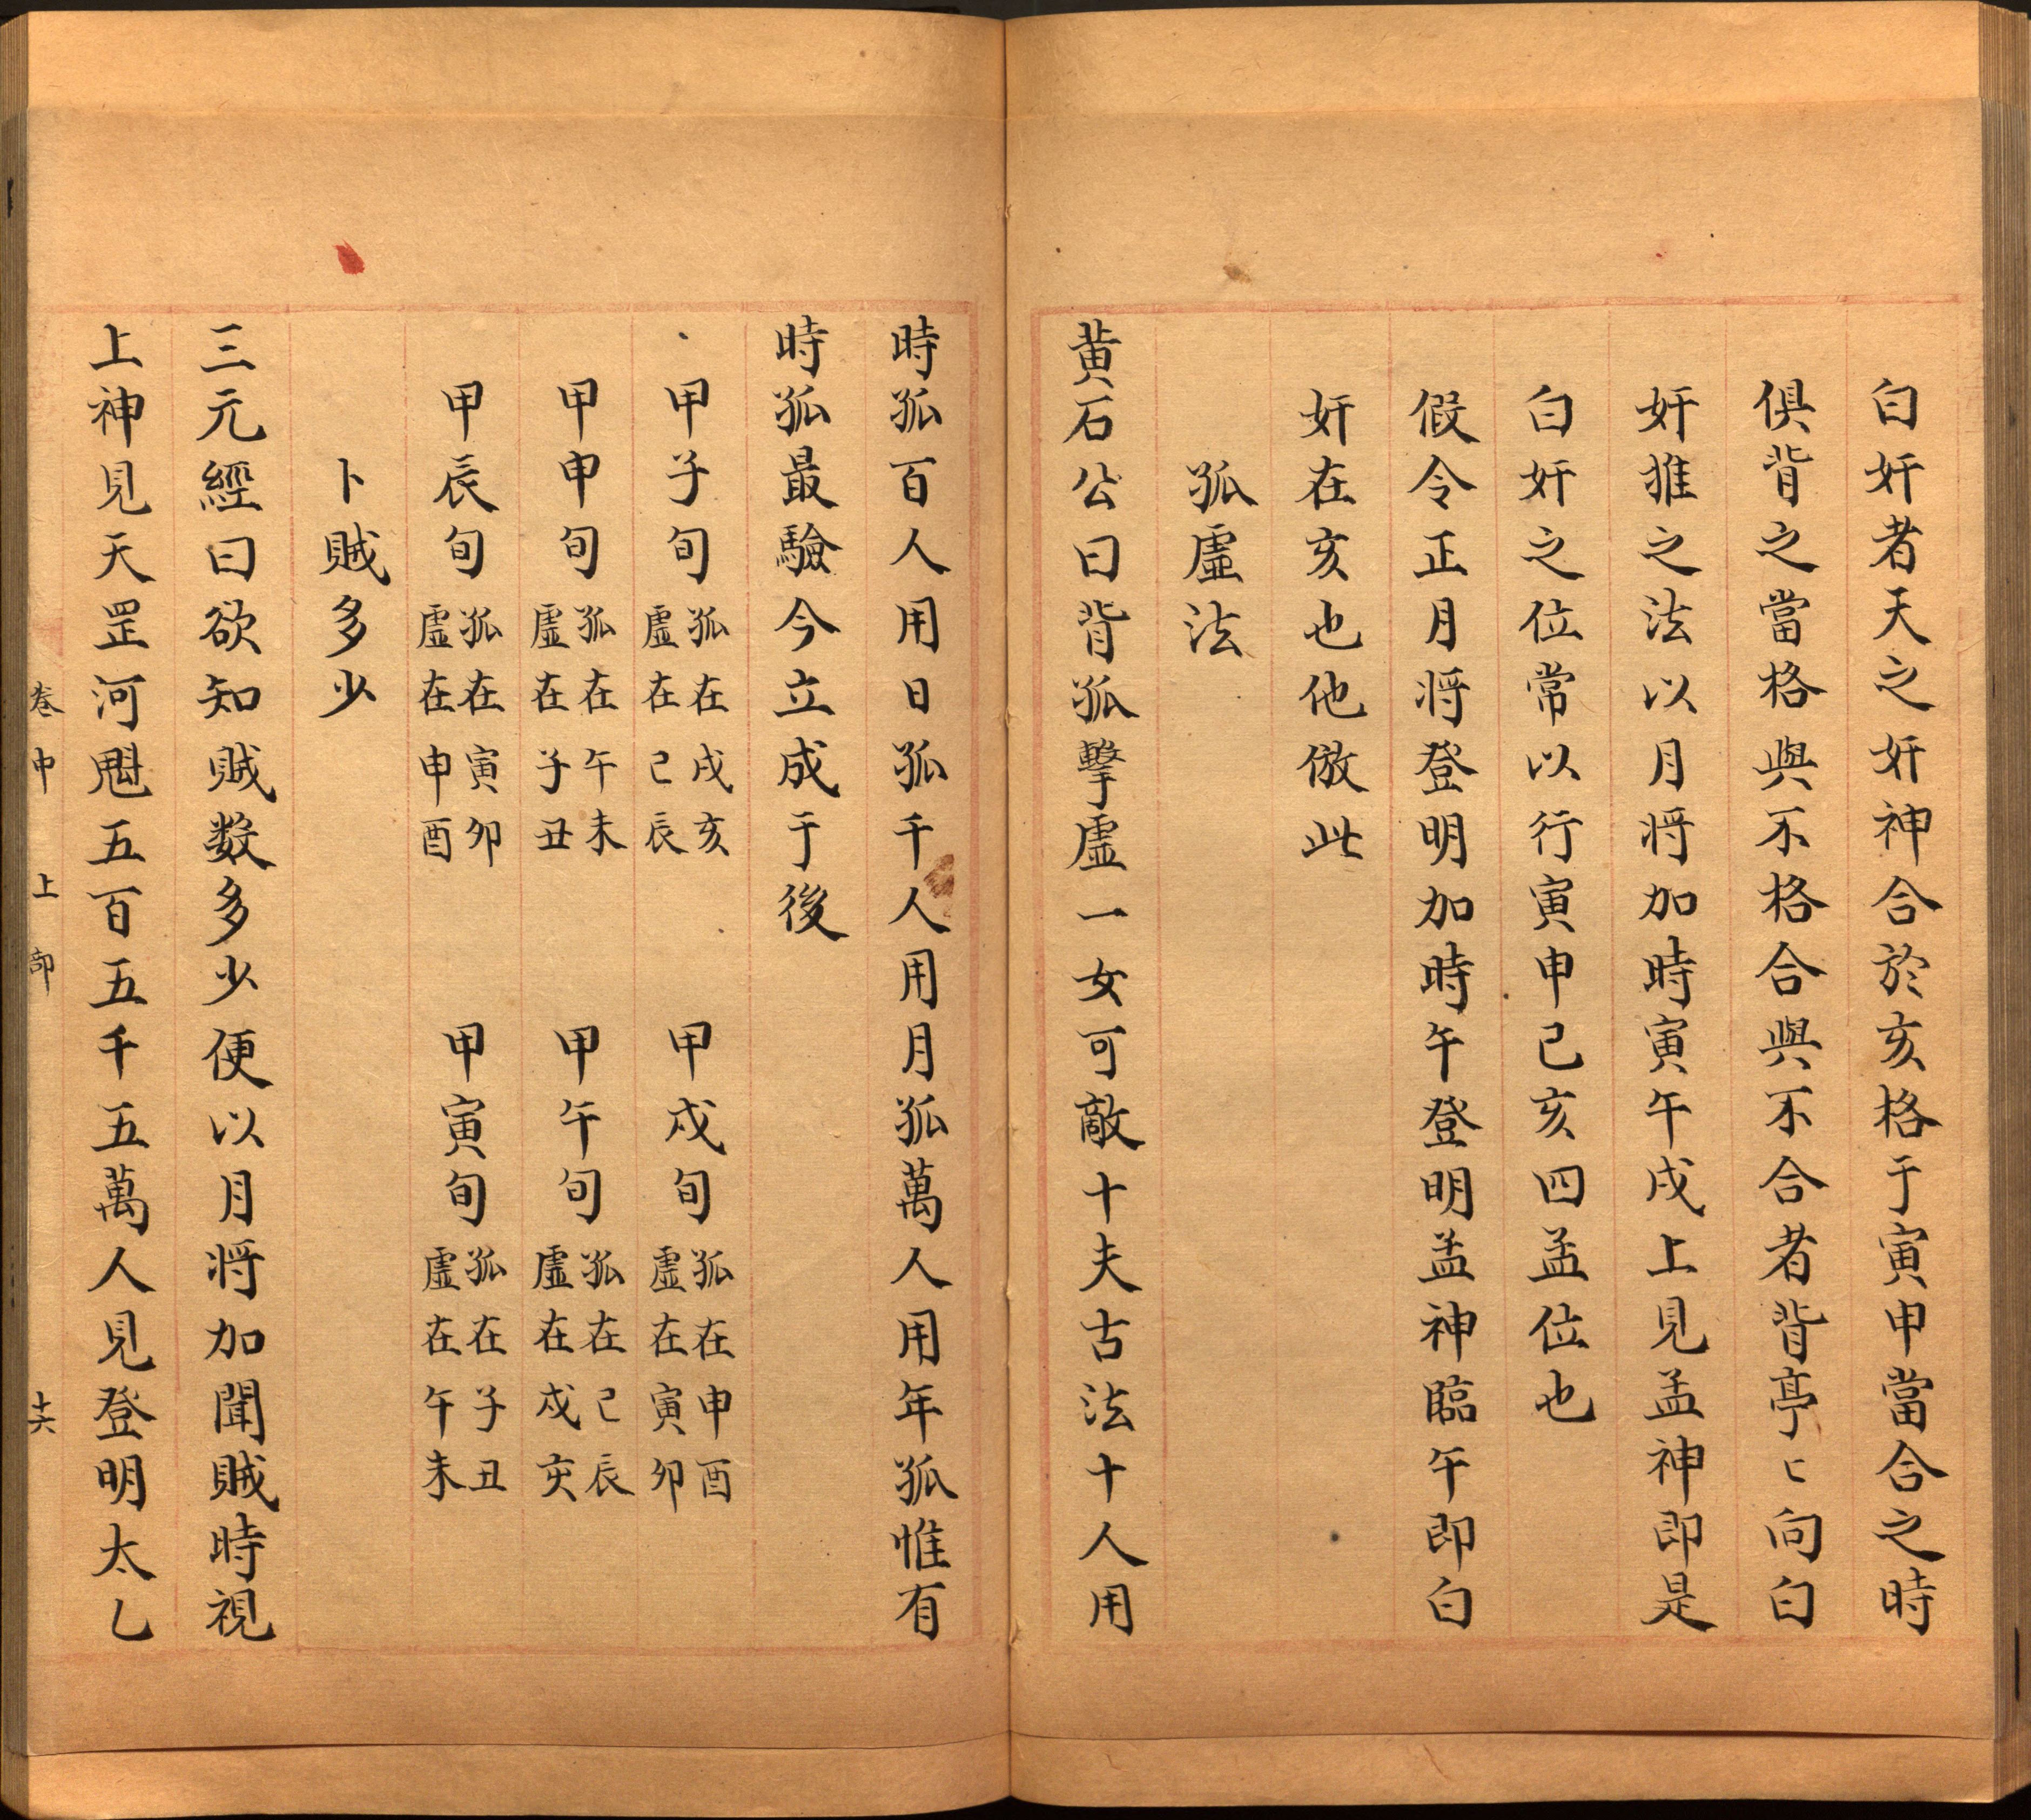 白奸者天之奸神合於亥格于寅申當合之時
俱背之當格與不格合與不合者背亭〻向白
奸推之法以月将加時寅午戌上見孟神即是
白奸之位常以行寅申巳亥四孟位也
假令正月将登明加時午登明孟神臨午即白
奸在亥也他倣此
孤虛法
黃石公曰背孤擊虛一女可敵十夫古法十人用
時孤百人用日孤千人用月孤萬人用年孤惟有
時孤最驗今立成于後
甲子旬 孤在戌亥 虛在巳辰 甲戌旬 孤在申酉 虛在寅卯
甲申旬 孤在午未 虛在子丑 甲午旬 孤在巳辰 虛在戌亥
甲辰旬 孤在寅卯 虛在申酉 甲寅旬 孤在子丑 虛在午未
卜賊多少
三元經曰欲知賊数多少便以月将加聞賊時視
上神見天罡河魁五百五千五萬人見登明太乙
卷中 上部 十六